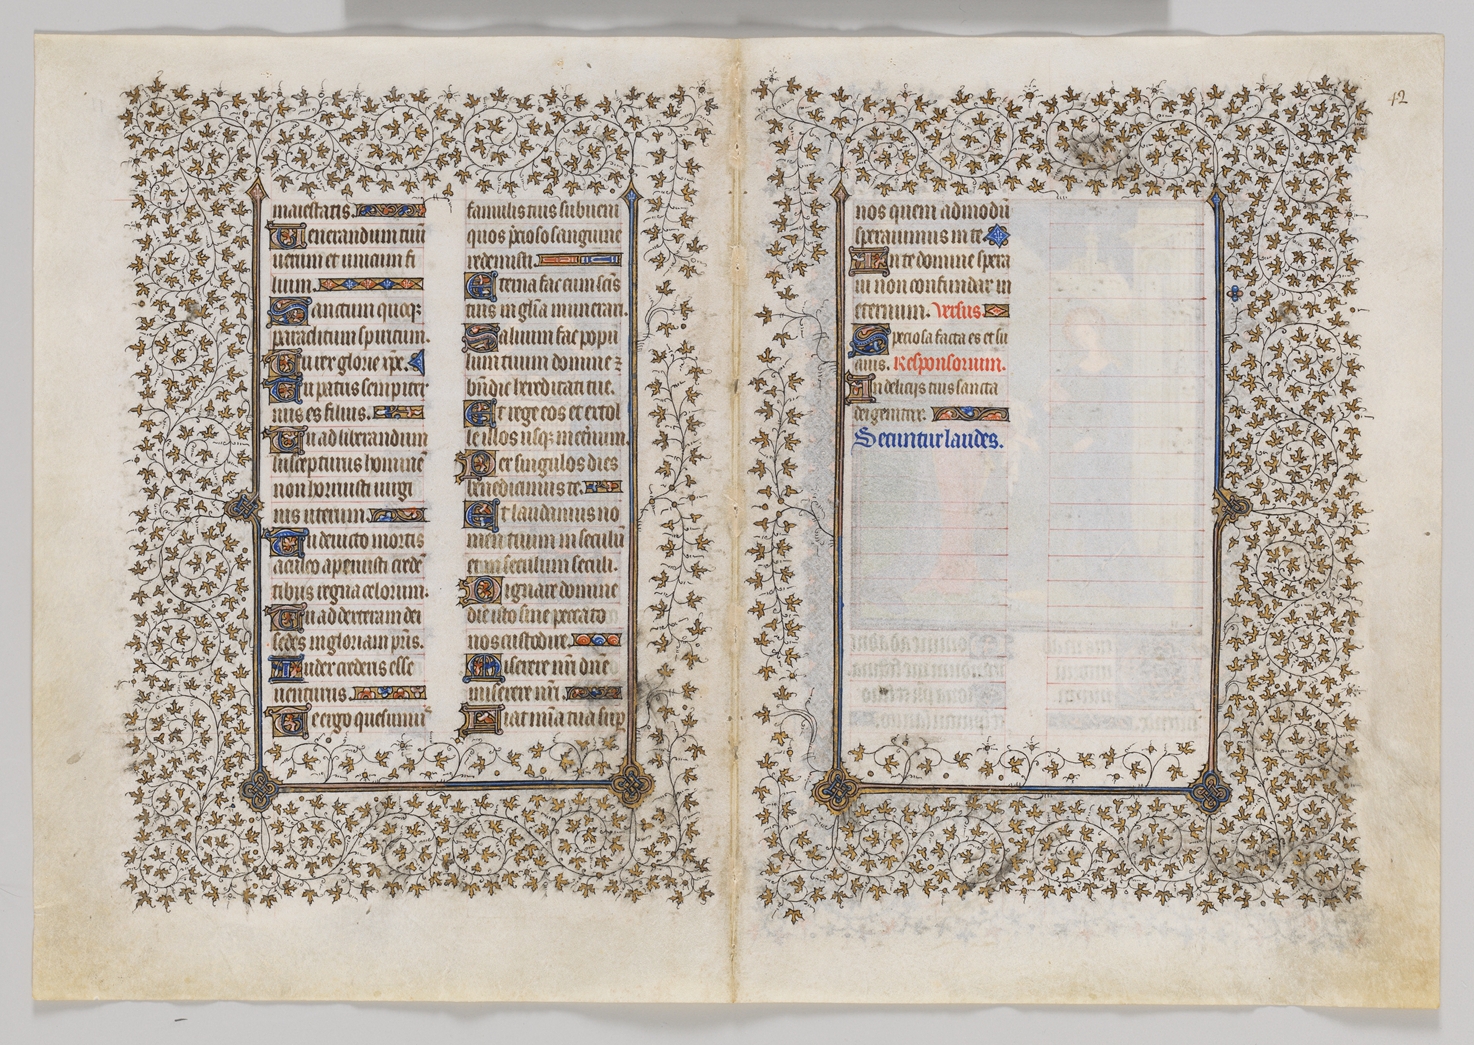 maiestatis.
Uenerandum tuũ
uerum et unicum fi
lium.
Sanctum quoqꝫ
paraclitum spiritum.
Tu rex glorie xp̃e.
Tu patris sempiter
nus es filius.
Tu ad liberandum
suscepturus hominẽ
non horruisti uirgi
nis uterum.
Tu deuicto mortis
aculeo aperuisti crede
tibus regna celorum.
Tu ad dexteram dei
sedes in gloriam pr̃is.
Iudex crederis esse
uenturus.
Te ergo quesumus
famulis tuis subueni
quos p̃cioso sanguine
redemisti.
Eterna fac cum sc̃is
tuis in gl̃ia numerari.
Saluum fac popu
lum tuum domine ⁊
bñdic hereditati tue.
Et rege eos et extol
le illos usqꝫ in et̃num.
Per singulos dies
benedicimus te.
Et laudamus no
men tuum in seculũ
et in seculum seculi.
Dignare domine
die isto sine peccato
nos custodire.
Miserere nr̃i dñe
miserere nr̃i.
Fiat mĩa tua sup
42
nos quem admodũ
sperauimus in te
In te domine spera
ui non confundar in
eternum. Versus
Speciosa facta es et su
auis. Responsorium.
In delicijs tuis sancta
dei genitrix.
Secuntur laudes.